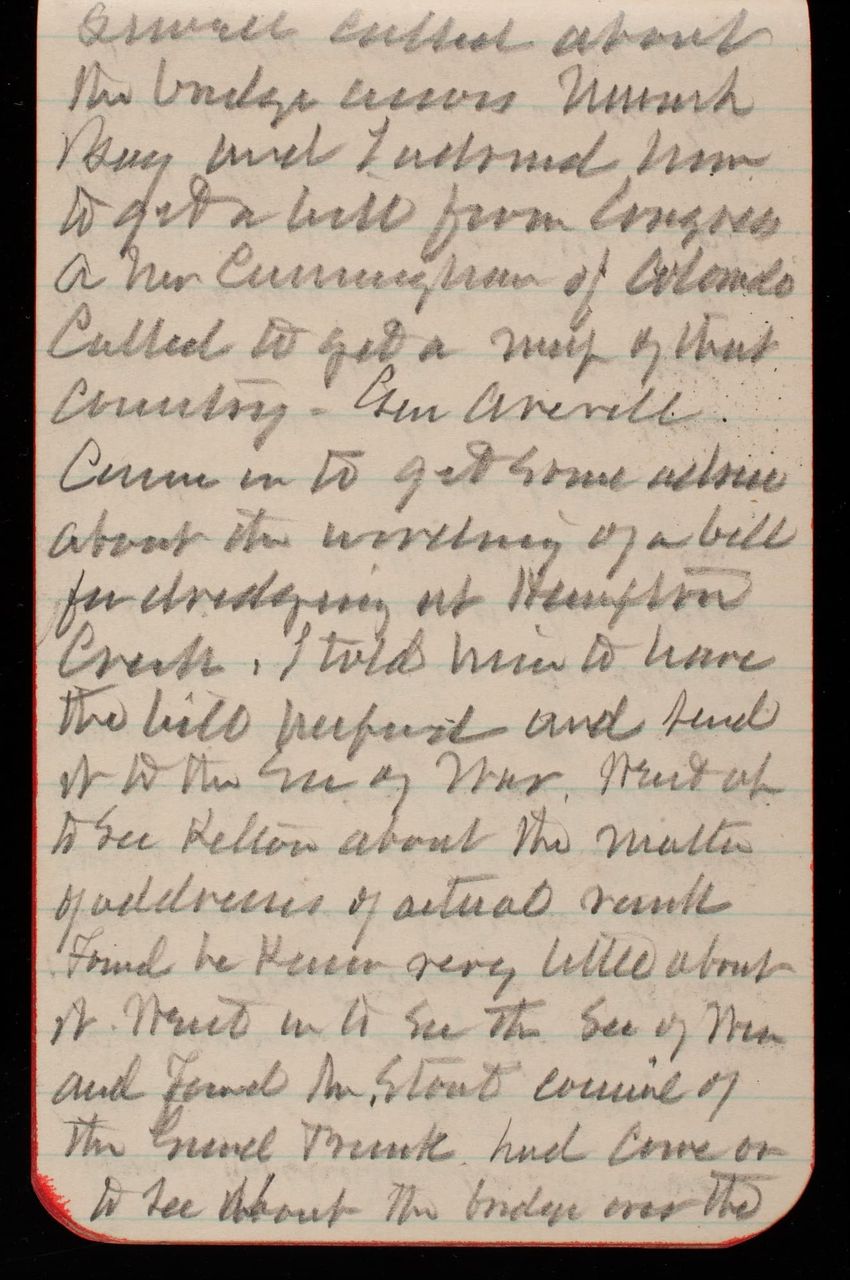 Sewell called about
the bridge across Newark
Bay and I advised him
to get a bill from Congress
A Mr Cunningham of Colorado
Called to get a map of that
Country - Gen Averell
Came in to get some advice
about the wording of a bill
for dredging at Hampton
Creek. I told him to have
the bill prepared and send
it to the Sec of War. Went up
to see Kelton about the matter
of addresses of actual rank
Found he knew very little about
it. Went in to see the Sec of War
and found Mr. Stout council of
the Grand Trunk had come on
to see about the bridge over the